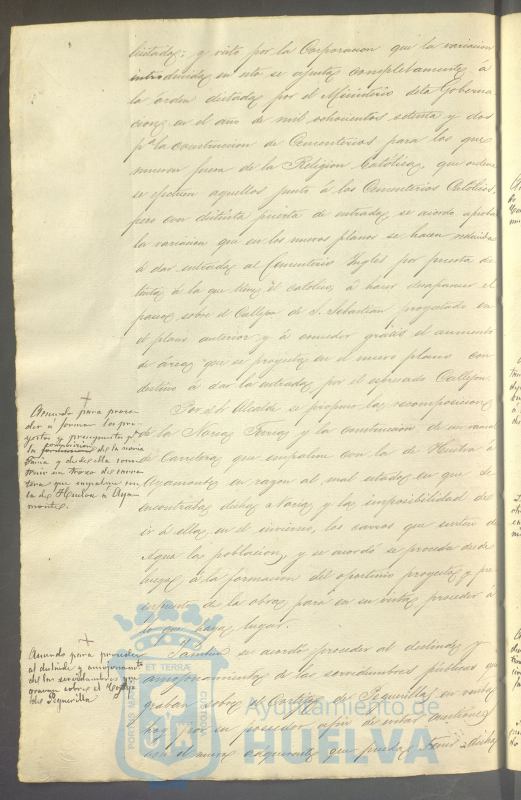 licitadas; y visto por la Corporacion que la variacion
introducida en nta se ajusta completamente á
la órden dictada por el Ministerio de la Goberna
cion, en el año de mil ochocientos setenta y dos
pª la construccion de Cementerios para los que
mueran fuera de la Religion Católica, que ordena
se situen aquellos junto á los Cementerios Católicos,
pero con distinta puerta de entrada, se acordó aprobar
la variacion que en los nuevos planos se hacen reducida
á dar entrada al Cementerio Ingles por puerta dis
tinta á la que tiene el católico á hacer desaparecer el
paseo sobre el Callejon de S. Sebastian proyectado en
el plano anterior y á conceder gratis el aumento
de área que se proyecta en el nuevo plano con
destino á dar la entrada por el espresado Callejon.
Por el Sr. Alcalde se propuso la recomposicion
de la Noria Feria y la construccion de un ramal
de Carretera que empalme con la de Huelva á
Ayamonte, en razon al mal estado en que se
encontraba dicha Noria y la imposibilidad de
ir á ella, en el invierno, los carros que surten de
agua la poblacion, y se acordó se proceda desde
luego á la formacion del oportuno proyecto y pre
supuesto de la obra para en su vista proceder á
lo que haya lugar.
Tambien se acordó proceder al deslinde y
amojonamiento de las servidumbres públicas que
graban sobre el Cortijo de Peguerilla, en
hoy por su poseedor afin de evitar cuestiones
con el nuevo adquirente que pueda tener á dicho
Acuerdo para proce-
der á formar los pro-
yectos y presupuestos pª
la composicion de la noria
Feria y desde ella cons-
truir un trozo de carre-
tera que empalme con
la de Huelva á Aya-
monte.
Acuerdo para proceder
al deslinde y amojonamiento
de las servidumbres que
gravan sobre el Cortijo
de Peguerilla
PORTUS MARIS ET TERRAE CUSTODIA
Ayuntamiento de
HUELVA